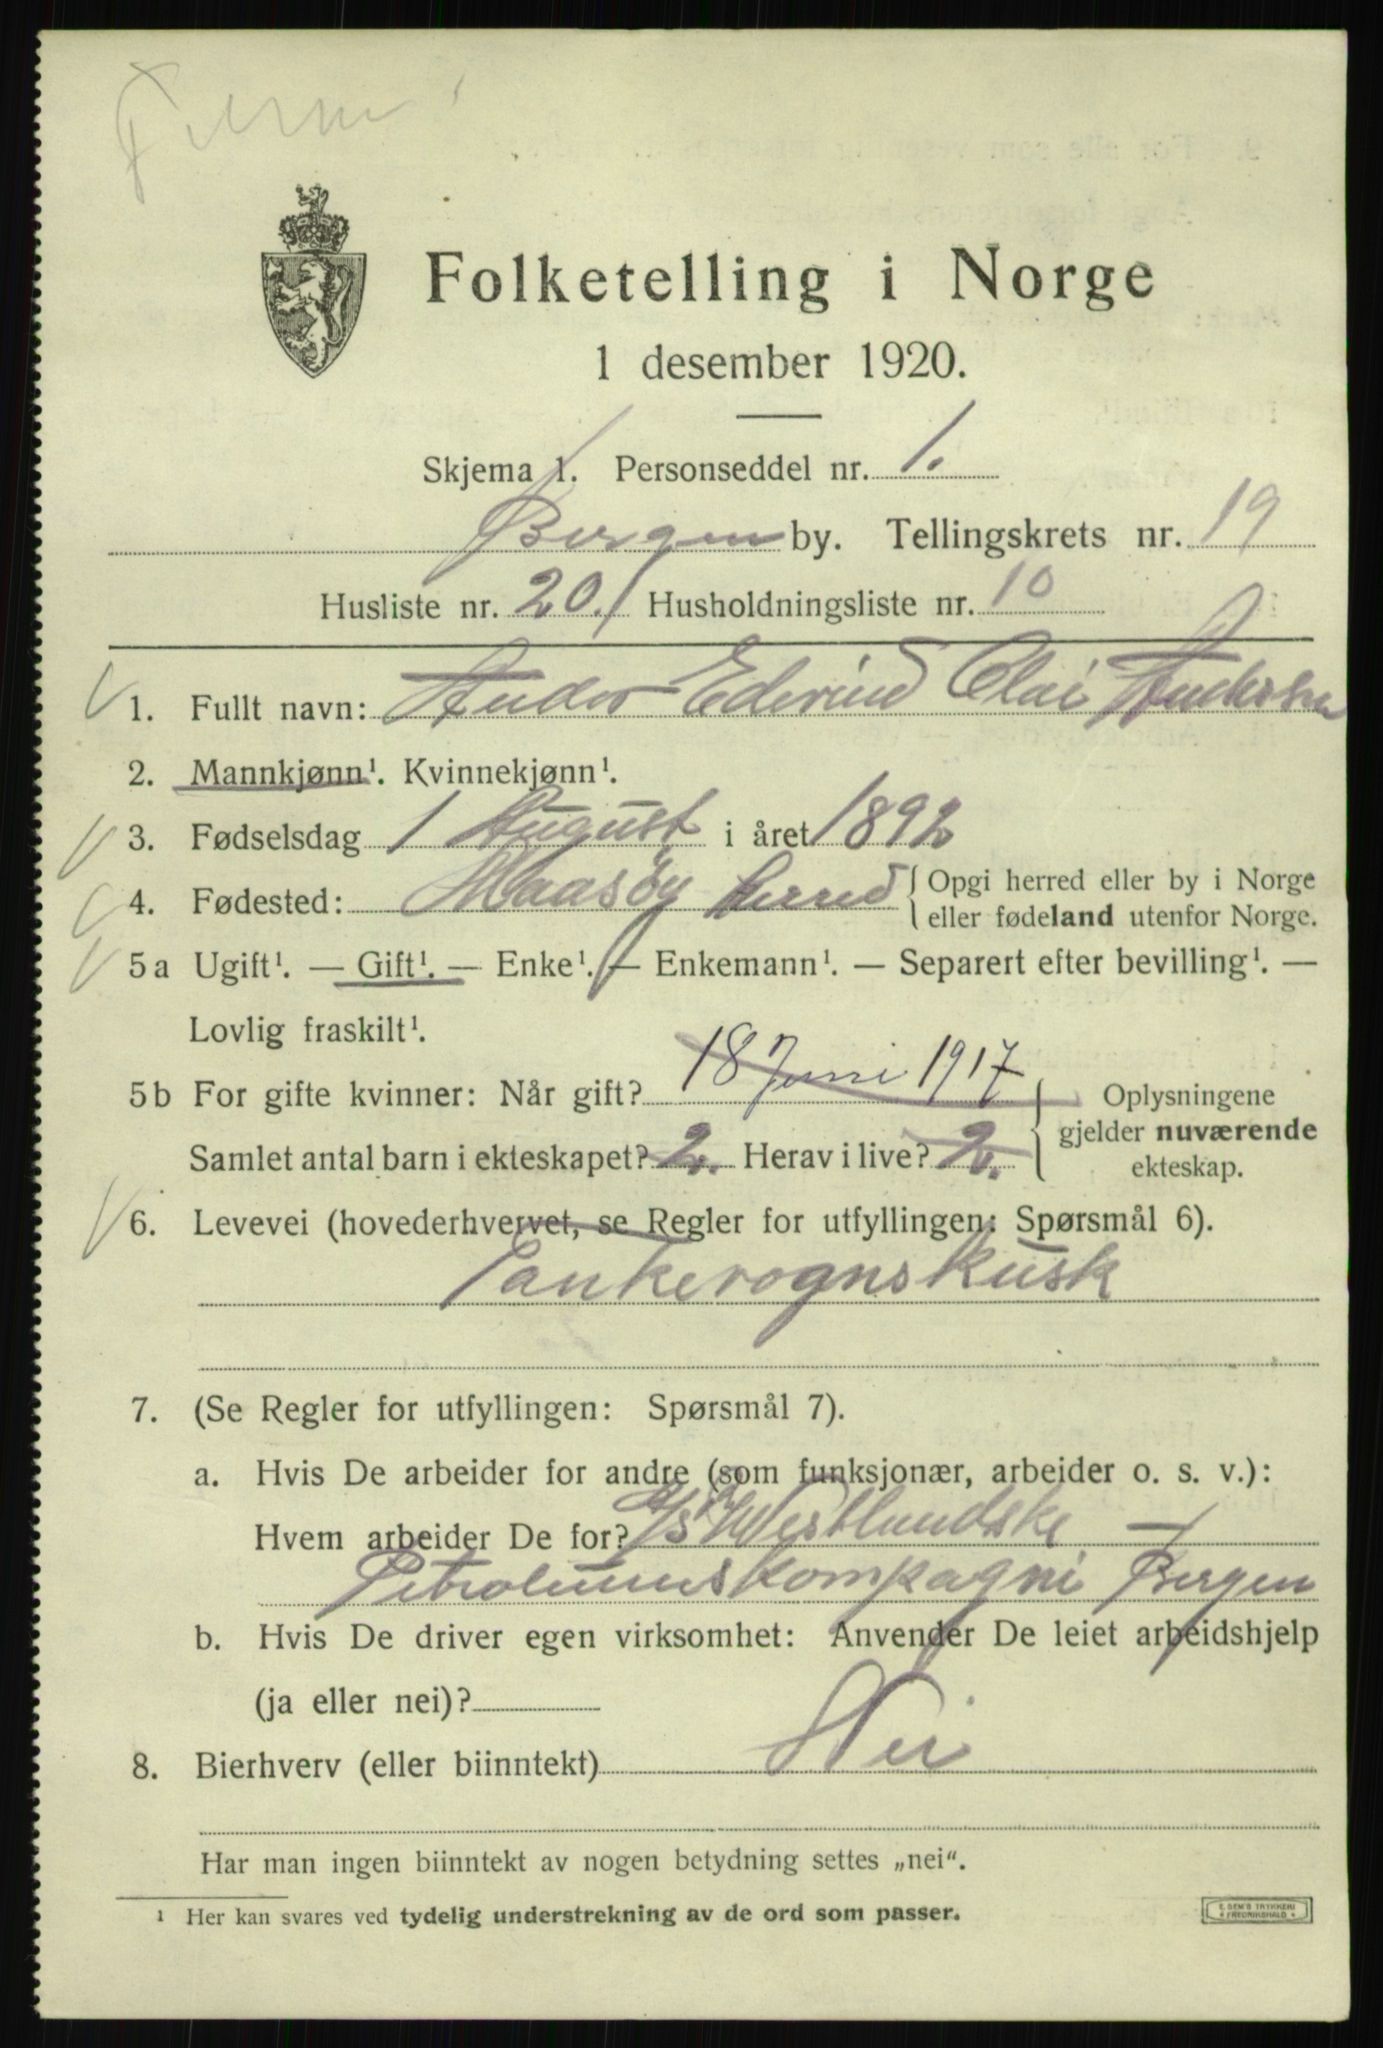 Folketelling i Norge
1 desember 1920.
Skjema 1. Personseddel nr. 1.
Bergen by. Tellingskrets nr. 19
Husliste nr. 20. Husholdningsliste nr. 10
1. Fullt navn: Andor Edevind Olai Andersen
2. Mannkjønn¹. Kvinnekjønn¹.
3. Fødselsdag 1 August i året 1892
4. Fødested: Maasöy herred { Opgi herred eller by i Norge
eller fødeland utenfor Norge.
5a Ugift¹. — Gift¹. — Enke¹. — Enkemann¹. — Separert efter bevilling¹. —
Lovlig fraskilt¹.
5b For gifte kvinner: Når gift? 18 Juni 1917
Samlet antal barn i ekteskapet? 2. Herav i live? 2.
} Oplysningene
gjelder nuværende
ekteskap.
6. Levevei (hovederhvervet, se Regler for utfyllingen: Spørsmål 6).
Tankevognskusk
7. (Se Regler for utfyllingen: Spørsmål 7).
a. Hvis De arbeider for andre (som funksjonær, arbeider o. s. v.):
Hvem arbeider De for? A/S Westlandske —
Petroleumskompagni Bergen
b. Hvis De driver egen virksomhet: Anvender De leiet arbeidshjelp
(ja eller nei)?
8. Bierhverv (eller biinntekt) Nei
Har man ingen biinntekt av nogen betydning settes „nei“.
¹ Her kan svares ved tydelig understrekning av de ord som passer.
E. SEM'S TRYKKERI
FREDRIKSHALD